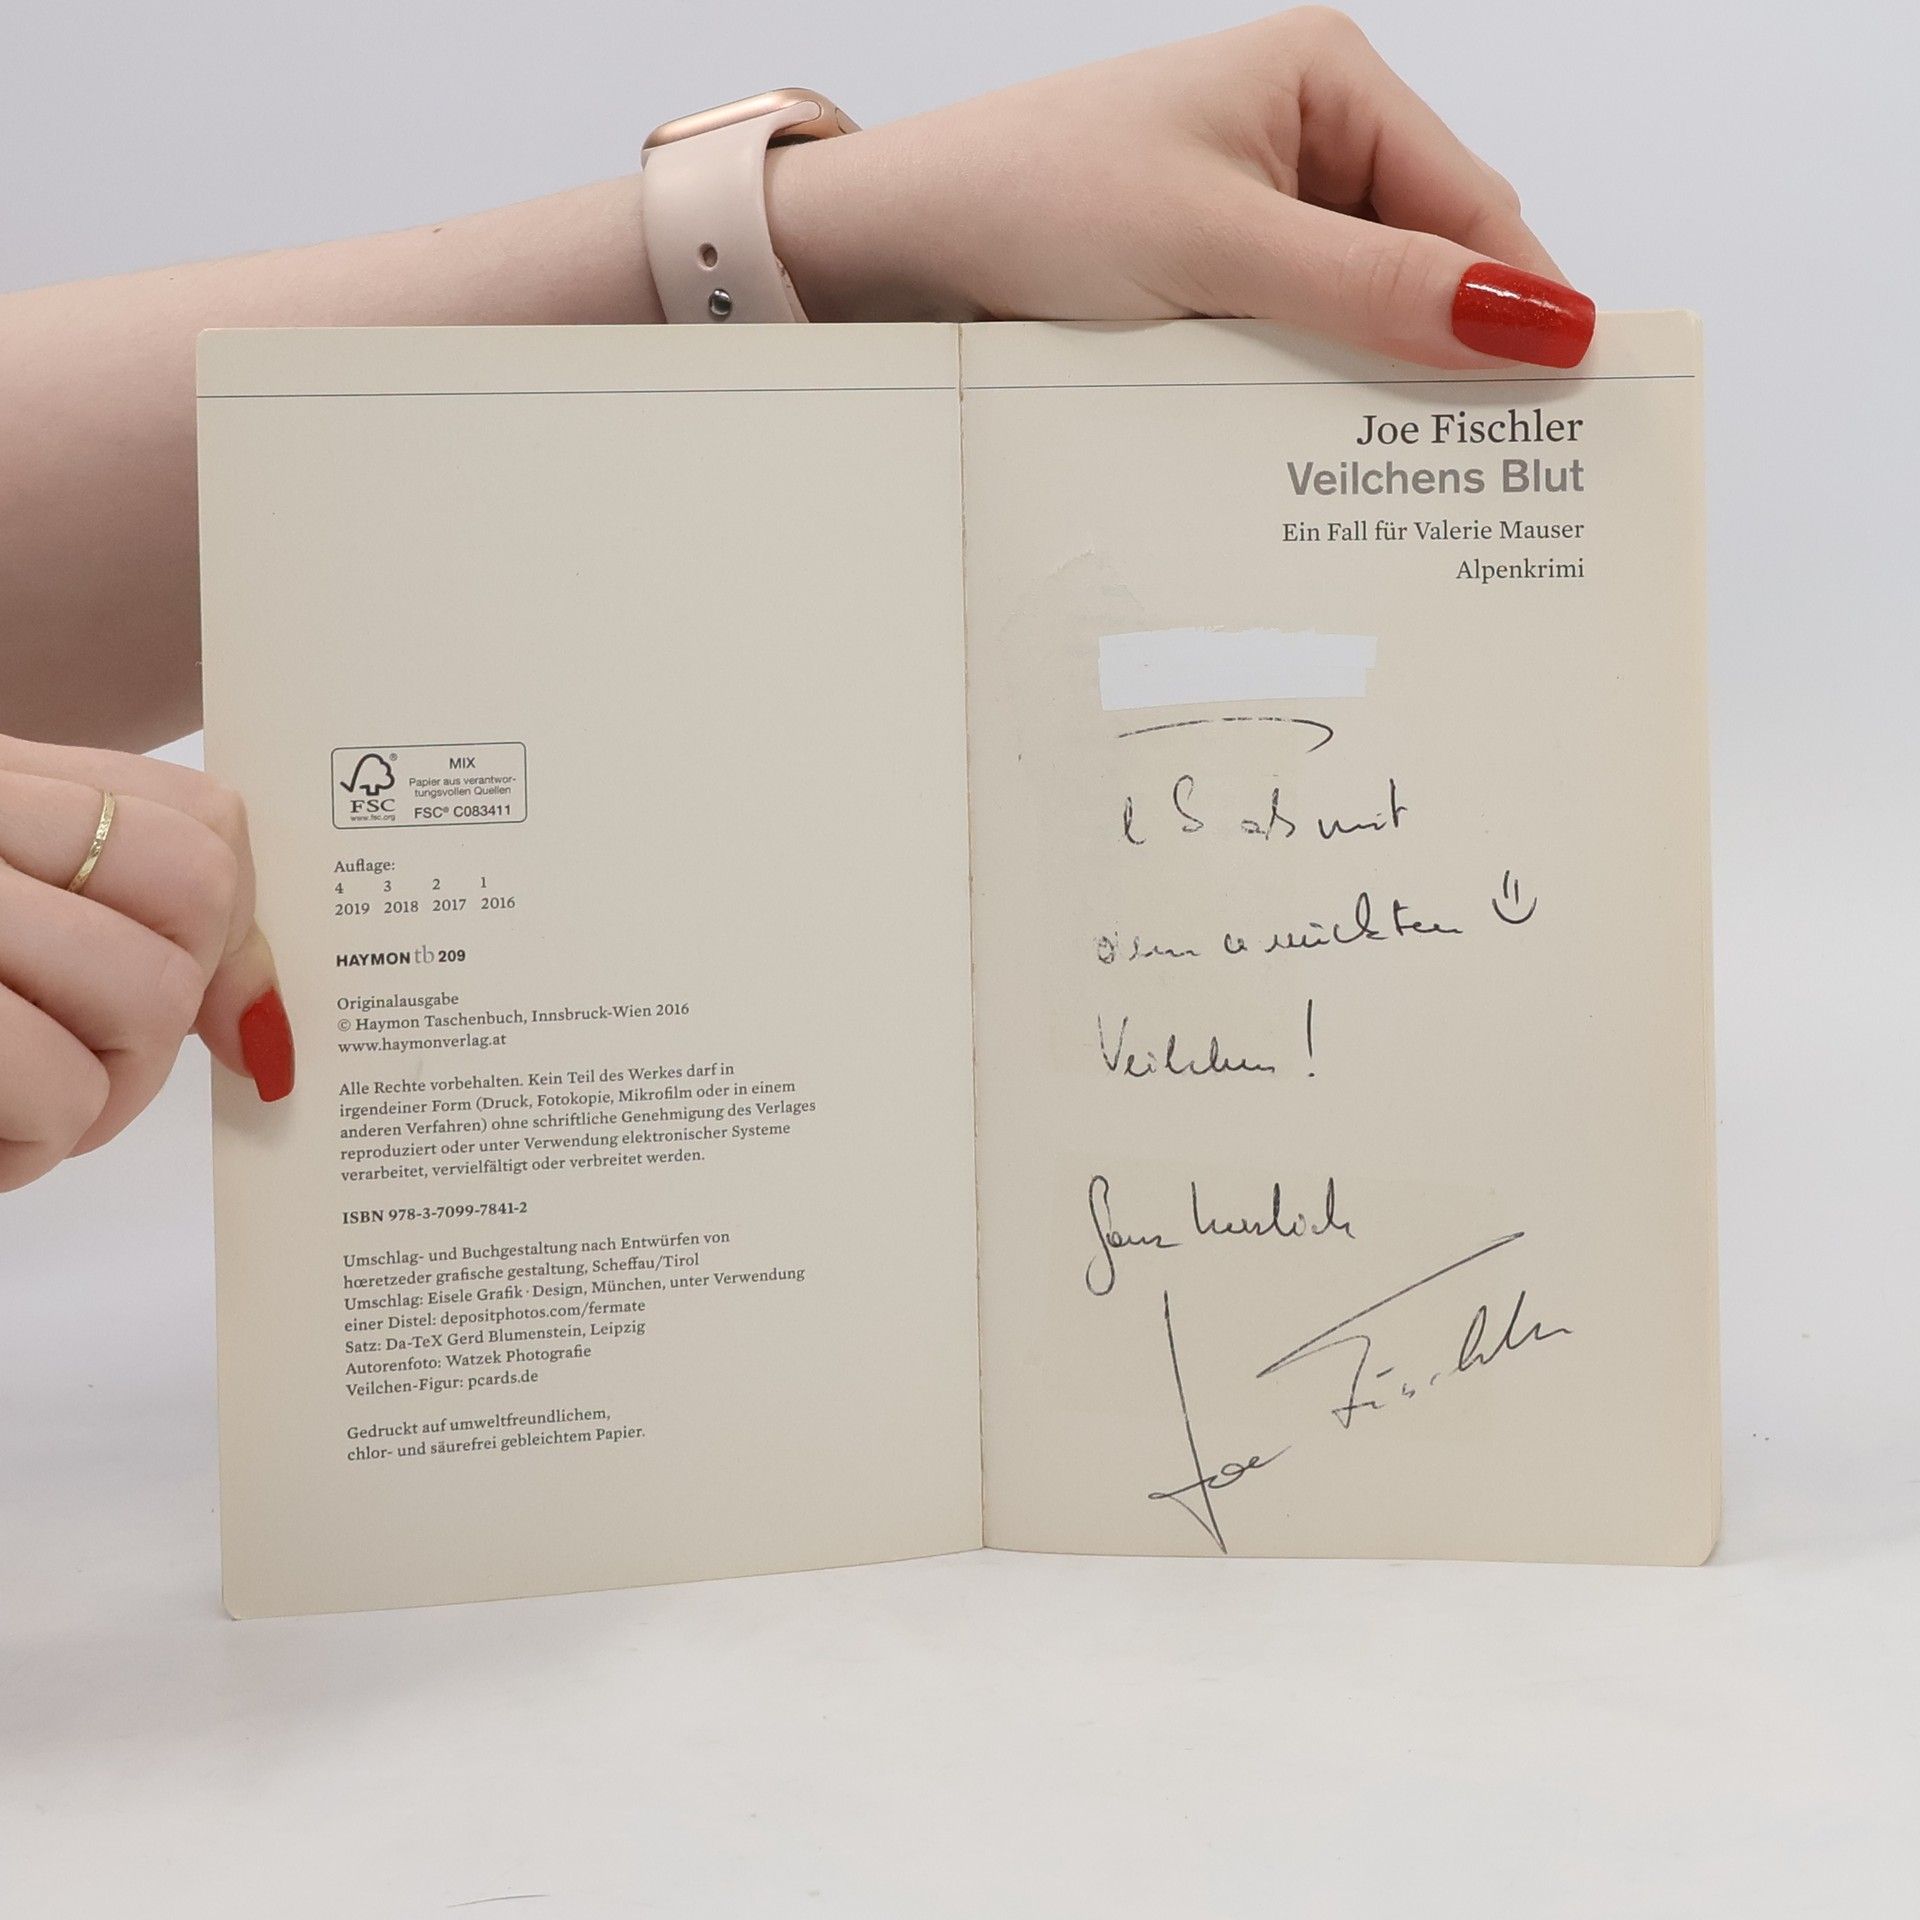 MIX
Papier aus verantwor-
tungsvollen Quellen
FSC® C083411
FSC
www.fsc.org
®
Auflage:
4 3 2 1
2019 2018 2017 2016
HAYMON tb 209
Originalausgabe
© Haymon Taschenbuch, Innsbruck-Wien 2016
www.haymonverlag.at
Alle Rechte vorbehalten. Kein Teil des Werkes darf in
irgendeiner Form (Druck, Fotokopie, Mikrofilm oder in einem
anderen Verfahren) ohne schriftliche Genehmigung des Verlages
reproduziert oder unter Verwendung elektronischer Systeme
verarbeitet, vervielfältigt oder verbreitet werden.
ISBN 978-3-7099-7841-2
Umschlag- und Buchgestaltung nach Entwürfen von
hœretzeder grafische gestaltung, Scheffau/Tirol
Umschlag: Eisele Grafik · Design, München, unter Verwendung
einer Distel: depositphotos.com/fermate
Satz: Da-TeX Gerd Blumenstein, Leipzig
Autorenfoto: Watzek Photografie
Veilchen-Figur: pcards.de
Gedruckt auf umweltfreundlichem,
chlor- und säurefrei gebleichtem Papier.
Joe Fischler
Veilchens Blut
Ein Fall für Valerie Mauser
Alpenkrimi
mit
Veilchen!
Ganz herzlich
Joe Fischler